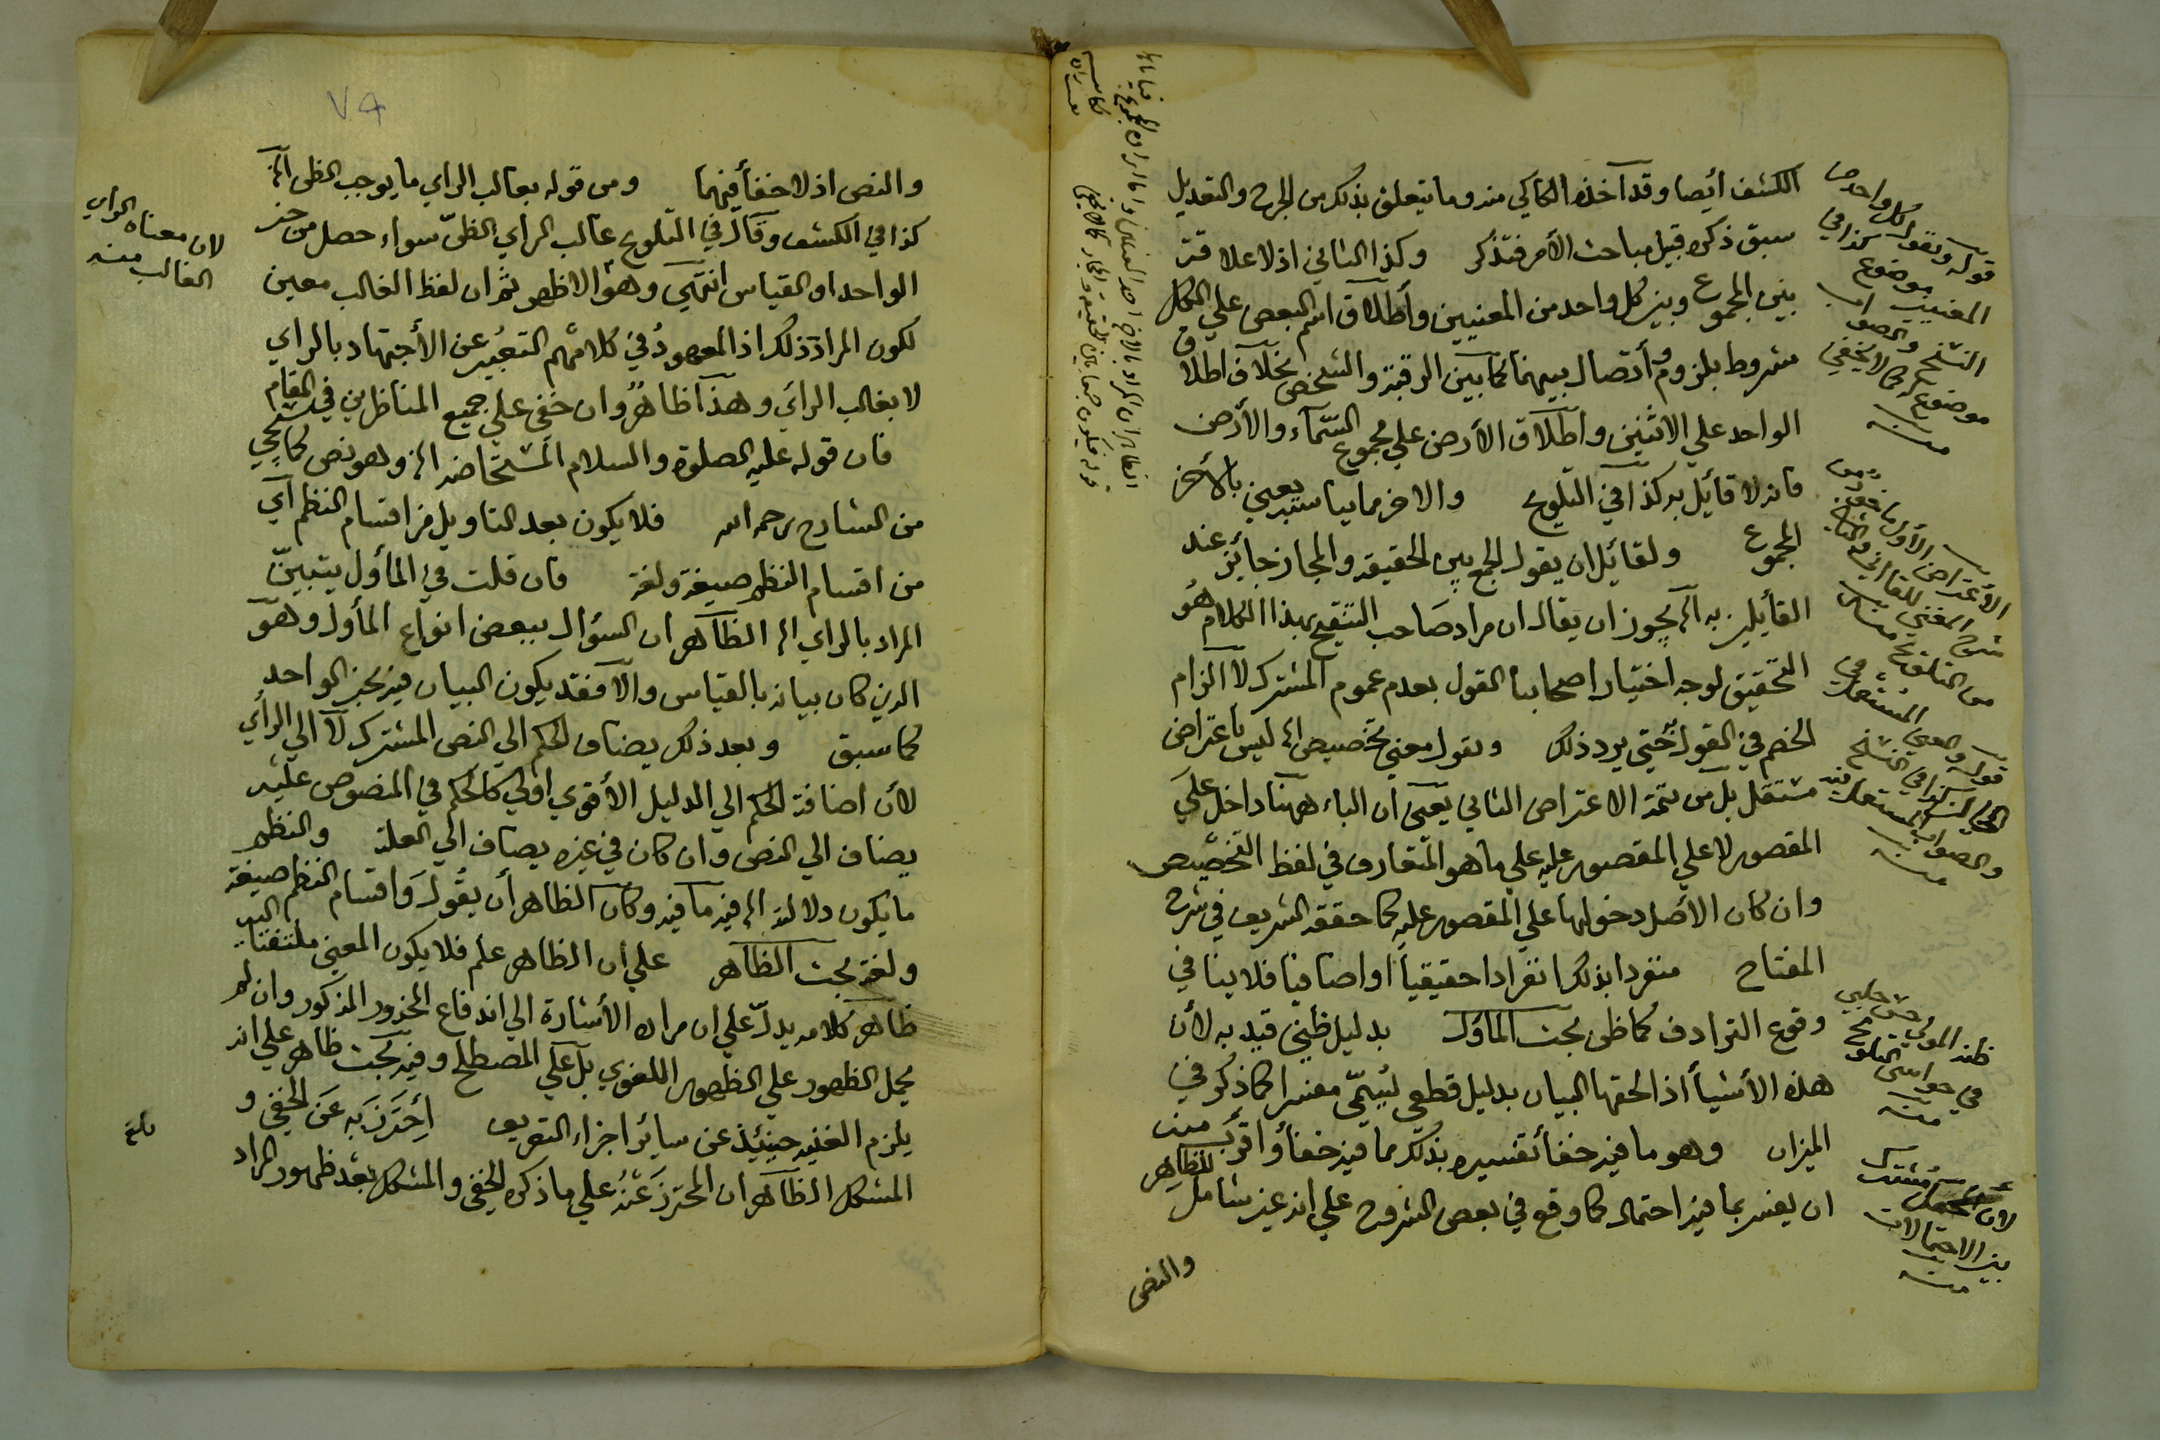 الكشف أيضا وقد آخذه الكاكي منه وما يتعلق بذلك من الجرح والتعديل
سبق ذكره قبيل مباحث الأمر فتذكر وكذا الثاني اذ لا علاقة
بين المجموع وبين كل واحد من المعنيين وأطلاق اسم البعض علي الكل
مشروط بلزوم وأتصال بينهما كما بين الرقبة والشخص بخلاف اطلاق
الواحد علي الاثنين واطلاق الأرض علي مجموع السماء والأرض
فانه لا قائل به كذا في التلويح والاخر مما يناسبه يعني بالأخر
المجموع ولقائل ان يقول الجمع بين الحقيقة والمجاز جائز عند
القائلين به الخ يجوز ان يقال ان مراد صاحب التنقيح بهذا الكلام هو
التحقيق لوجه اختيار اصحابنا القول بعدم عموم المشترك لا الزام
الخصم في القول حتي يرد ذلك وبقول معني تخصيص الخ ليس باعتراض
مستقل بل من تتمة الاعتراض الثاني يعني ان الباء ههنا داخل علي
المقصور لا علي المقصور عليه علي ما هو المتعارف في لفظ التخصيص
وان كان الأصل دخولها علي المقصور عليه كما حققه الشريف في شرح
المفتاح منفردا بذلك انفرادا حقيقيا او اضافيا فلا ينافي
وقوع الترادف كما ظن بحث المأول بدليل ظني قيد به لأن
هذه الأشيأ اذا لحقها البيان بدليل قطعي يسمي مفسرا كما ذكر في
الميزان وهو ما فيه خفأ تفسيره بذلك مما فيه خفأ وأقرب منه
ان يفسر بما فيه احتمال كما وقع في بعض الشروح علي انه غير شامل للظاهر
والنص
قوله وبقوله لكل واحد من
المعنيين كذا في
النسخ والصواب موضوع
موضوع له كما لا يخفي
منه
الأعتراض الأول مأخوذ من
شرح المغني للقااني والثاني
من التلويح منه
قوله والمعني المستعمل في
الحال كذا في النسخ
والصواب المستعمل فيه
منه
ظنه المولي حسن چلبي
في حواشي التلويح
منه
لأن المحتمل مشترك
بين الاحتمالات
منه
٧٩
والنص اذ لا خفأ فيهما ومن قوله بغالب الراي ما يوجب الظن الخ
كذا في الكشف وقال في التلويح غالب الراي الظن سواء حصل من خبر
الواحد او القياس انتهي وهو الاظهر ثم ان لفظ الغالب معين
لكون المراد ذلك اذ المعهود في كلامهم التعبير عن الأجتهاد بالراي
لا بغالب الراي وهذا ظاهر وان خفي علي جميع المناظرين في المقام
فان قوله عليه الصلوة والسلام المستحاضة الخ وهو نص كما سيجي
من الشارح رحمه الله فلا يكون بعد التاويل من اقسام النظم آي
من اقسام النظم صيغة ولغة فان قلت في المأول يتبين
المراد بالراي الخ الظاهر ان السؤال ببعض انواع المأول وهو
الذي كان بيانه بالقياس والا فقد يكون البيان فيه بخبر الواحد
كما سبق وبعد ذلك يضاف الحكم الي النص المشترك لا الي الراي
لأن اضافة الحكم الي الدليل الأقوي اولي كالحكم في المنصوص عليه
يضاف الي النص وان كان في غيره يضاف الي العلة والنظم
ما يكون دلالته الخ فيه ما فيه وكان الظاهر أن يقول واقسام النظم صيغة
ولغة بحث الظاهر علي ان الظاهر علم فلا يكون المعني ملتفتا اليه
ظاهر كلامه يدل علي ان مراده الأشارة الي اندفاع المحذور المذكور وان لم
يحمل الظهور علي الظهور اللغوي بل علي المصطلح وفيه بحث ظاهر علي انه
يلزم الغنيه حينئذ عن سائر اجزاء التعريف أحترز به عن الخفي و
المشكل الظاهر ان المحترز عنه علي ما ذكره الخفي والمشكل بعد ظهور المراد
لان معناه الراي
الغالب منه
بلغ